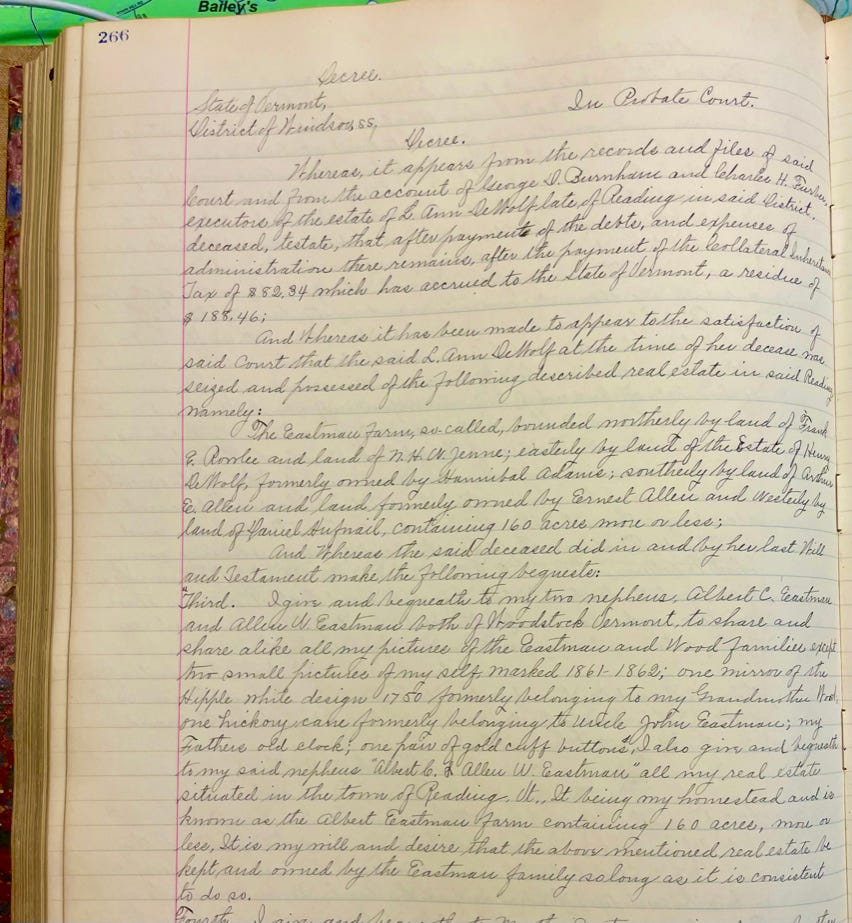 Bailey's
266
Decree.
State of Vermont,
District of Windsor, ss,
In Probate Court.
Decree.
Whereas, it appears from the records and files of said
Court and from the account of George D. Burnham and Charles H. Furber,
executors of the estate of L. Ann DeWolf late of Reading in said District,
deceased, testate, that after payment of the debts, and expenses of
administration there remains, after the payment of the Collateral Inheritance
Tax of $82.34 which has accrued to the State of Vermont, a residue of
$188.46;
And Whereas it has been made to appear to the satisfaction of
said Court that the said L. Ann DeWolf at the time of her decease was
seized and possessed of the following described real estate in said Reading
namely:
The Eastman Farm, so-called, bounded northerly by land of Frank
E. Rowlee and land of N. H. W. Jenne; easterly by land of the Estate of Henry
DeWolf, formerly owned by Hannibal Adams; southerly by land of Arthur
E. Allen and land formerly owned by Ernest Allen and Westerly by
land of Daniel Hufnail, containing 160 acres more or less;
And Whereas the said deceased did in and by her last Will
and Testament make the following bequests:
"Third. I give and bequeath to my two nephews, Albert C. Eastman
and Allen W. Eastman both of Woodstock Vermont, to share and
share alike all my pictures of the Eastman and Wood families except
two small pictures of my self marked 1861-1862; one mirror of the
Hipple white design 1750 formerly belonging to my Grandmother Wood,
one hickory cane formerly belonging to Uncle John Eastman; my
Fathers old clock; one pair of gold cuff buttons", I also give and bequeath
to my said nephews "Albert C. & Allen W. Eastman" all my real estate
situated in the town of Reading, Vt., It being my homestead and is
known as the Albert Eastman farm containing 160 acres, more or
less, It is my will and desire that the above mentioned real estate be
kept and owned by the Eastman family so long as it is consistent
to do so.
Fourth. I give and